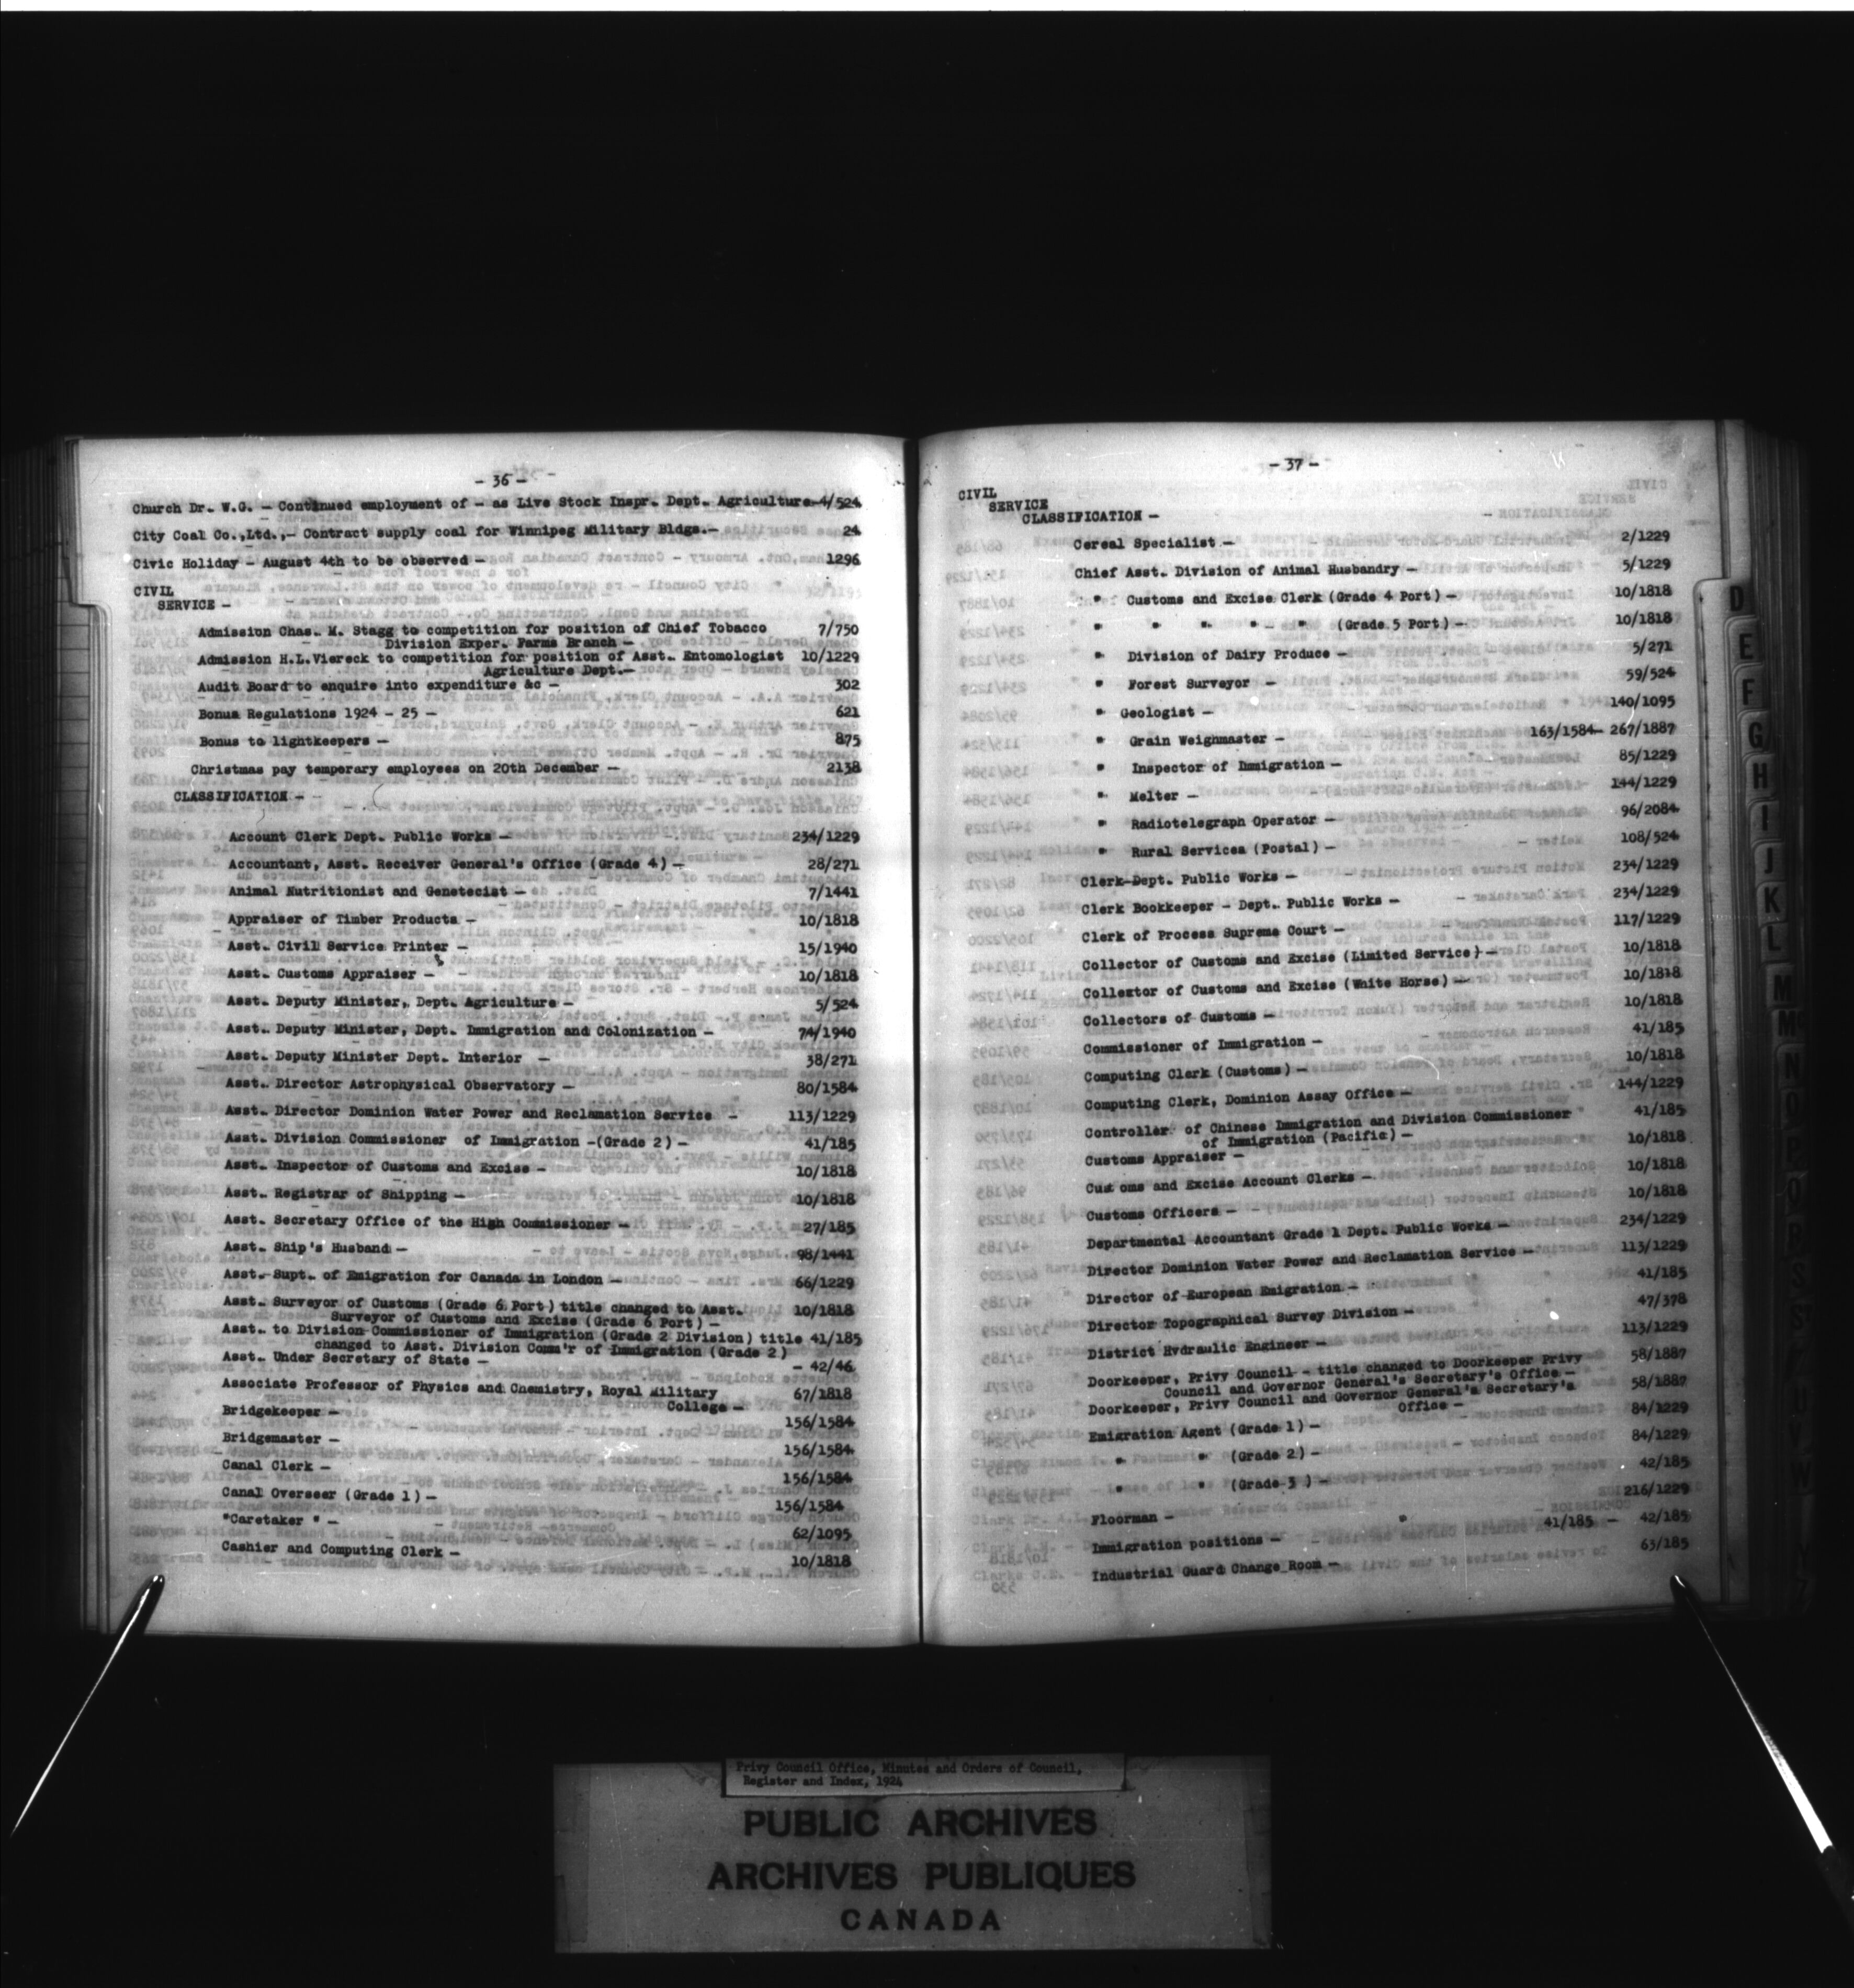 - 36 -
Church Dr. W.G. - Continued employment of - as Live Stock Inspr. Dept. Agriculture-4/524
City Coal Co.,Ltd.,- Contract supply coal for Winnipeg Military Bldgs.- 24
Civic Holiday - August 4th to be observed - 1296
CIVIL
SERVICE -
Admission Chas. M. Stagg to competition for position of Chief Tobacco 7/750
Division Exper. Farms Branch -
Admission H.L.Viereck to competition for position of Asst. Entomologist 10/1229
Agriculture Dept.-
Audit Board to enquire into expenditure &c - 302
Bonus Regulations 1924 - 25 - 621
Bonus to lightkeepers - 875
Christmas pay temporary employees on 20th December - 2138
CLASSIFICATION -
Account Clerk Dept. Public Works - 234/1229
Accountant, Asst. Receiver General's Office (Grade 4) - 28/271
Animal Nutritionist and Genetecist - 7/1441
Appraiser of Timber Products - 10/1818
Asst. Civil Service Printer - 15/1940
Asst. Customs Appraiser - 10/1818
Asst. Deputy Minister, Dept. Agriculture - 5/524
Asst. Deputy Minister, Dept. Immigration and Colonization - 74/1940
Asst. Deputy Minister Dept. Interior - 38/271
Asst. Director Astrophysical Observatory - 80/1584
Asst. Director Dominion Water Power and Reclamation Service - 113/1229
Asst. Division Commissioner of Immigration -(Grade 2) - 41/185
Asst. Inspector of Customs and Excise - 10/1818
Asst. Registrar of Shipping - 10/1818
Asst. Secretary Office of the High Commissioner - 27/185
Asst. Ship's Husband - 98/1441
Asst. Supt. of Emigration for Canada in London - 66/1229
Asst. Surveyor of Customs (Grade 6 Port) title changed to Asst. 10/1818
Surveyor of Customs and Excise (Grade 6 Port) -
Asst. to Division Commissioner of Immigration (Grade 2 Division) title 41/185
changed to Asst. Division Comm'r of Immigration (Grade 2)
Asst. Under Secretary of State - - 42/46
Associate Professor of Physics and Chemistry, Royal Military 67/1818
College -
Bridgekeeper - 156/1584
Bridgemaster - 156/1584
Canal Clerk - 156/1584
Canal Overseer (Grade 1) - 156/1584
"Caretaker " - 62/1095
Cashier and Computing Clerk - 10/1818
- 37 -
CIVIL
SERVICE
CLASSIFICATION -
Cereal Specialist - 2/1229
Chief Asst. Division of Animal Husbandry - 5/1229
" Customs and Excise Clerk (Grade 4 Port) - 10/1818
" " " " " (Grade 5 Port) - 10/1818
" Division of Dairy Produce - 5/271
" Forest Surveyor - 59/524
" Geologist - 140/1095
" Grain Weighmaster - 163/1584- 267/1887
" Inspector of Immigration - 85/1229
" Melter - 144/1229
" Radiotelegraph Operator - 96/2084
" Rural Services (Postal) - 108/524
Clerk-Dept. Public Works - 234/1229
Clerk Bookkeeper - Dept. Public Works - 234/1229
Clerk of Process Supreme Court - 117/1229
Collector of Customs and Excise (Limited Service) - 10/1818
Collextor of Customs and Excise (White Horse) - 10/1818
Collectors of Customs - 10/1818
Commissioner of Immigration - 41/185
Computing Clerk (Customs) - 10/1818
Computing Clerk, Dominion Assay Office - 144/1229
Controller of Chinese Immigration and Division Commissioner 41/185
of Immigration (Pacific) -
Customs Appraiser - 10/1818
Customs and Excise Account Clerks - 10/1818
Customs Officers - 10/1818
Departmental Accountant Grade 1 Dept. Public Works - 234/1229
Director Dominion Water Power and Reclamation Service - 113/1229
Director of European Emigration - 41/185
Director Topographical Survey Division - 47/378
District Hydraulic Engineer - 113/1229
Doorkeeper, Privy Council - title changed to Doorkeeper Privy 58/1887
Council and Governor General's Secretary's Office -
Doorkeeper, Privy Council and Governor General's Secretary's 58/1887
Office -
Emigration Agent (Grade 1) - 84/1229
" " (Grade 2) - 84/1229
" " (Grade 3 ) - 42/185
Floorman - 216/1229
Immigration positions - 41/185 - 42/185
Industrial Guard Change Room - 63/185
D
E
F
G
H
I
J
K
L
M
M
N
O
Privy Council Office, Minutes and Orders of Council,
Register and Index, 1924
PUBLIC ARCHIVES
ARCHIVES PUBLIQUES
CANADA